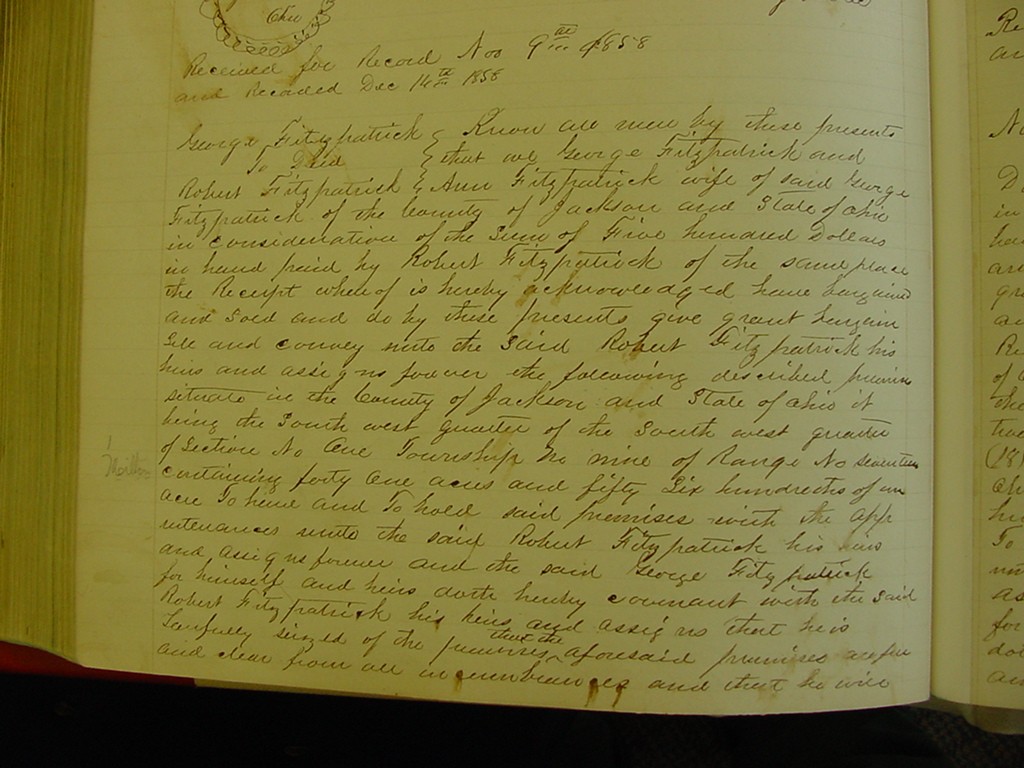 Ohio
Received for Record Nov 9th 1858
and Recorded Dec 14th 1858
George Fitzpatrick } Know all men by these presents
To Deed } that we George Fitzpatrick and
Robert Fitzpatrick } Ann Fitzpatrick wife of said George
Fitzpatrick of the County of Jackson and State of Ohio
in consideration of the Sum of Five hundred Dollars
in hand paid by Robert Fitzpatrick of the same place
the Receipt whereof is hereby acknowledged have bargained
and Sold and do by these presents give grant bargain
Sell and convey unto the Said Robert Fitzpatrick his
heirs and assigns forever the following described premises
situate in the County of Jackson and State of Ohio it
being the South west quarter of the South west quarter
of Section No One Township No nine of Range No seventeen
containing forty One acres and fifty Six hundredths of an
acre To have and To hold said premises with the app
urtenances unto the said Robert Fitzpatrick his heirs
and assigns forever and the said George Fitzpatrick
for himself and heirs doth hereby covenant with the Said
Robert Fitzpatrick his heirs and assigns that he is
Lawfully seized of the premises that the aforesaid premises are free
and clear from all incumbrances and that he will